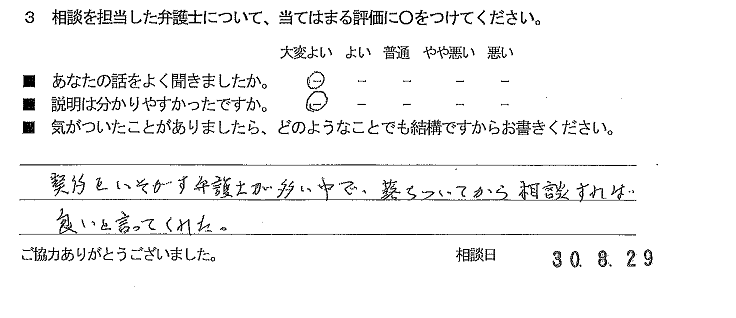 3 相談を担当した弁護士について、当てはまる評価に○をつけてください。
大変よい よい 普通 やや悪い 悪い
■ あなたの話をよく聞きましたか。 － － － － －
■ 説明は分かりやすかったですか。 － － － － －
■ 気がついたことがありましたら、どのようなことでも結構ですからお書きください。
契約をいそがす弁護士が多い中で、落ちついてから相談すれば
良いと言ってくれた。
ご協力ありがとうございました。 相談日 30. 8. 29